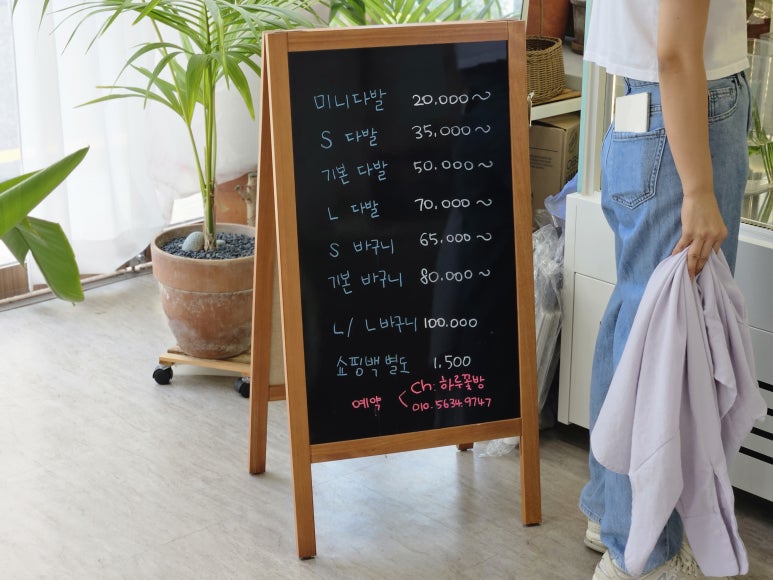 미니다발 20,000~
S 다발 35,000~
기본 다발 50,000~
L 다발 70,000~
S 바구니 65,000~
기본 바구니 80,000~
L/ L바구니 100,000
쇼핑백 별도 1,500
예약 < Ch. 하루꽃방
010.5634.9747